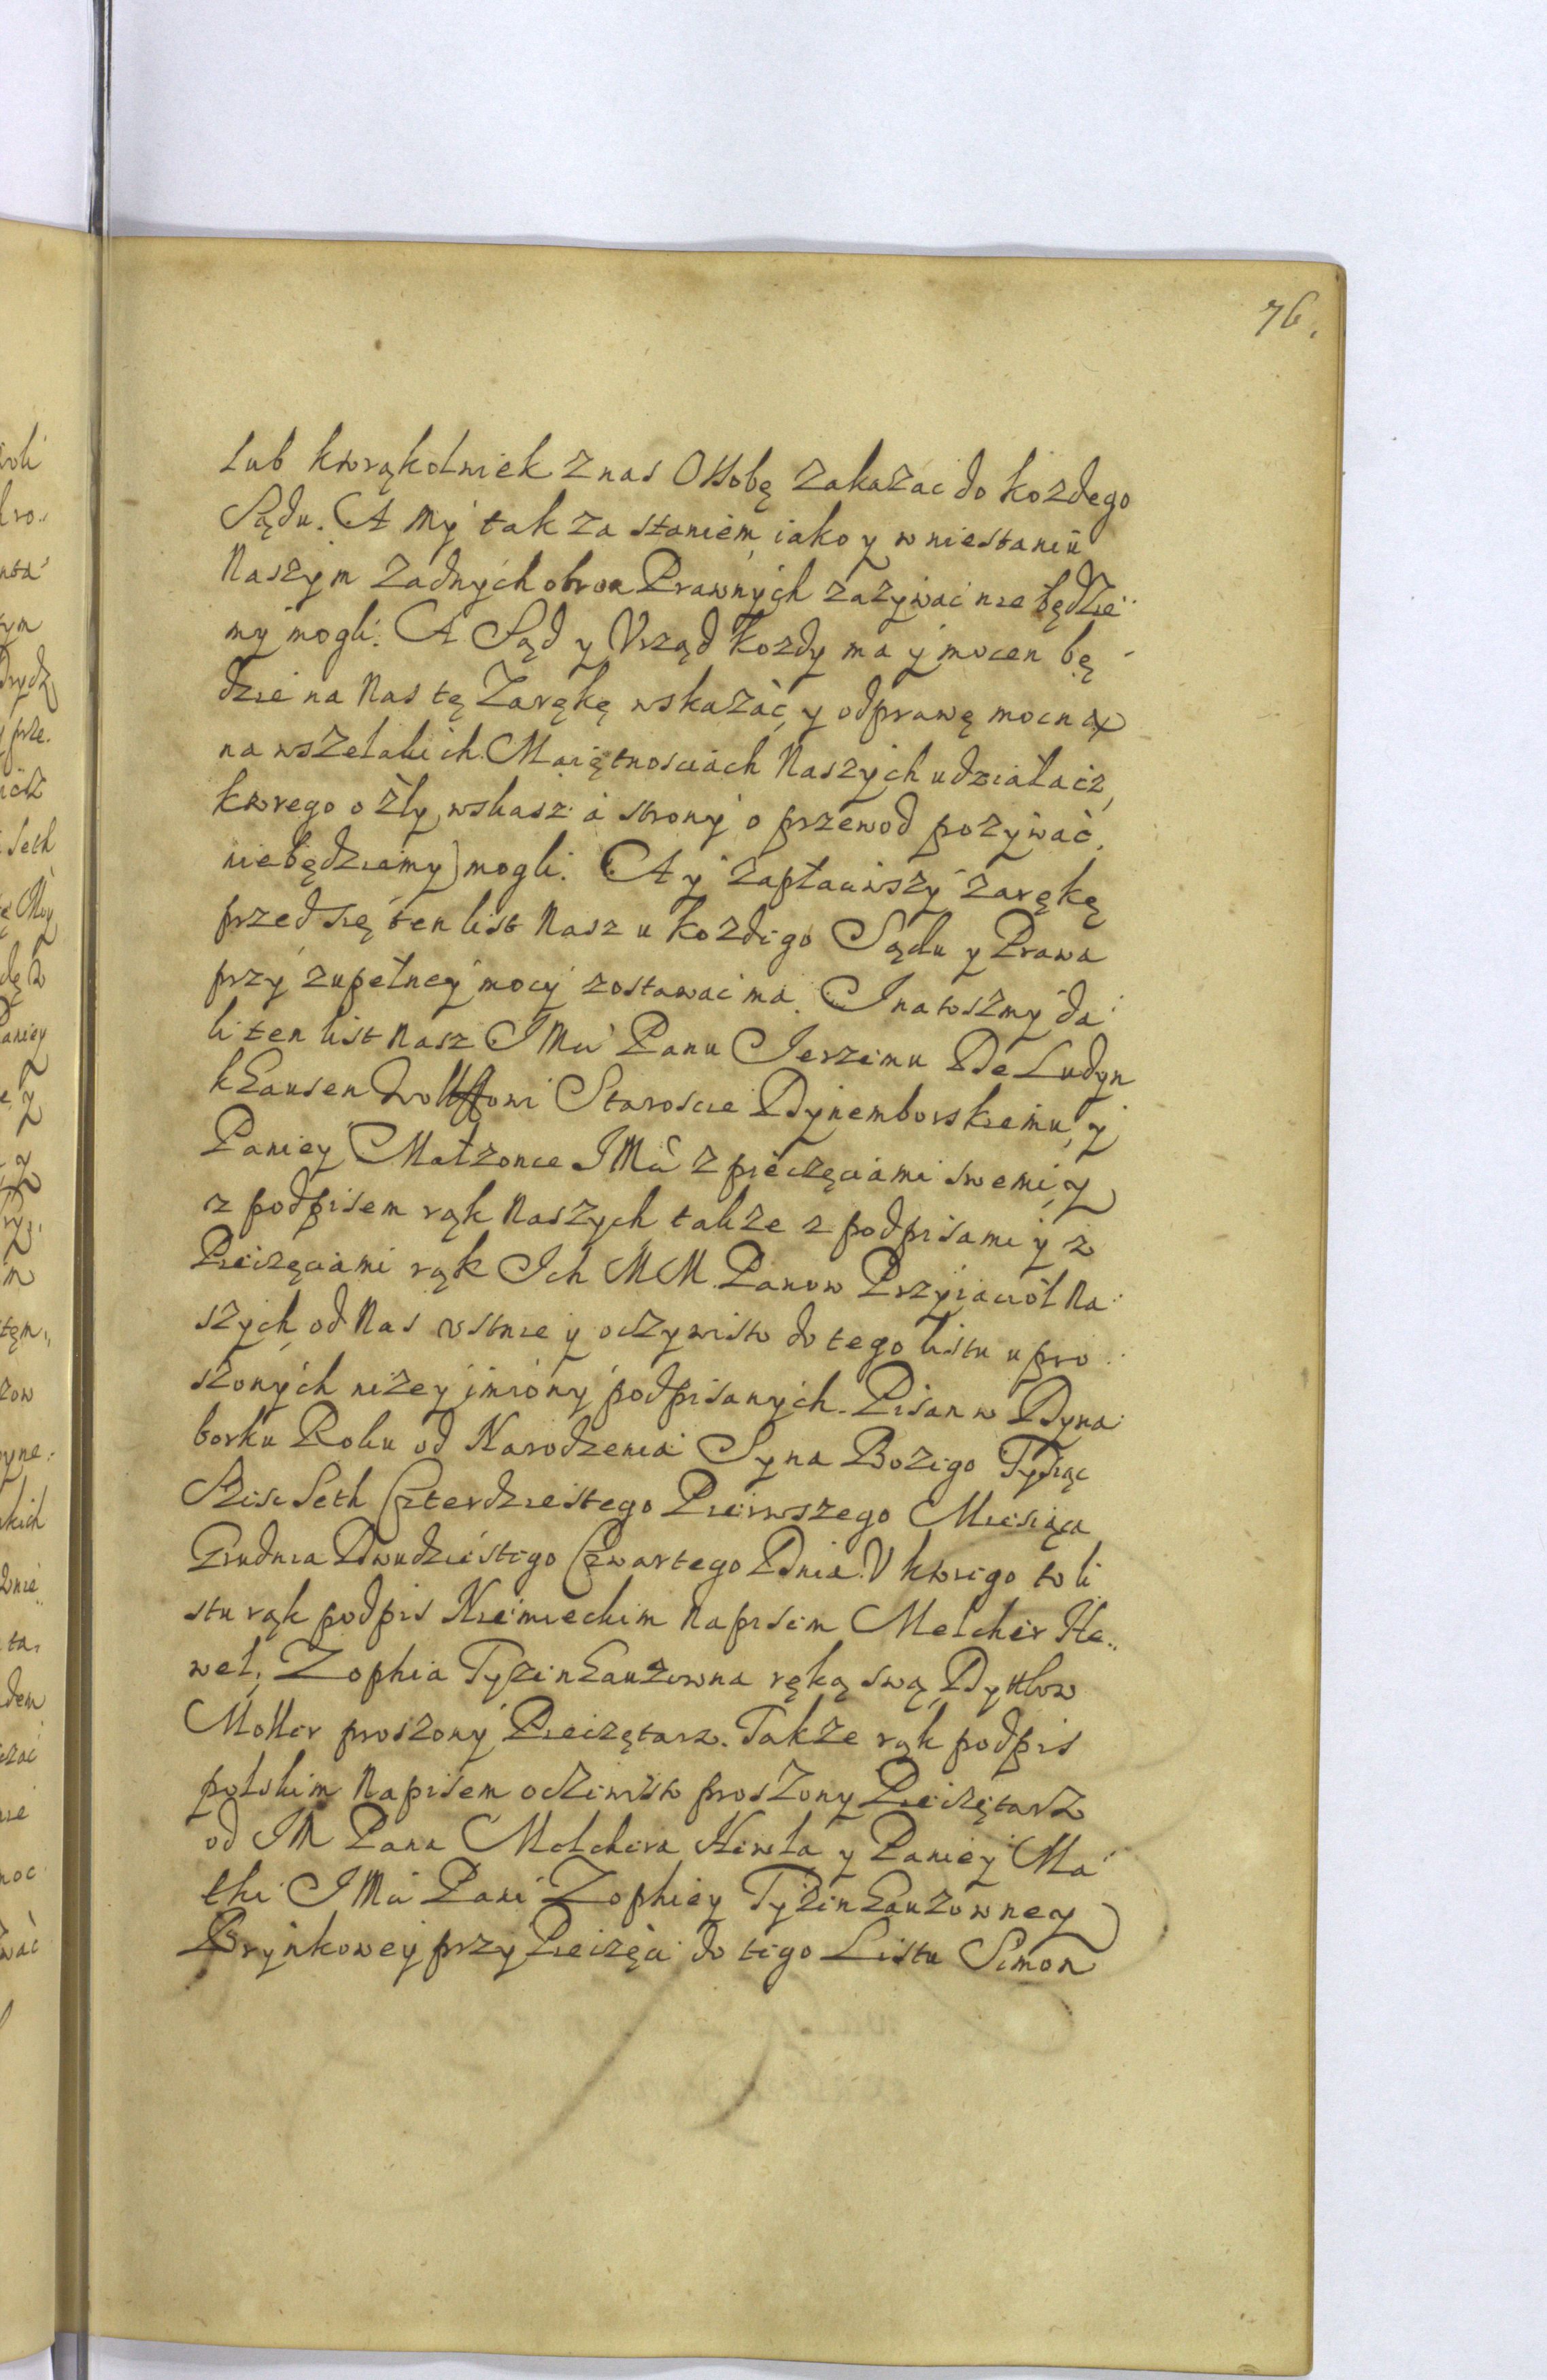 76.
Lub ktorąkolwiek z nas Ossobę zakazac do kozdego
Sądu. A my tak za staniem iako y w niestaniu
Naszym zadnych obron Prawnych zazywac nie będzie
my mogli. A Sąd y Vrząd kozdy ma y mocen bę
dzie na Nas tę Zarękę wskazac, y odprawę mocną
na wszelakich Maiętnosciach Naszych udziałacz,
ktorego o zły wskasz a strony o przewod pozywac
niebędziemy mogli. A y zapłaciwszy zarękę
przed się ten list Nasz u kozdego Sądu y Prawa
przy zupełney mocy zostawac ma. I na tosmy da
li ten list Nasz IMci Panu Ierzemu De Ludyn
kHausen Wolffowi Staroscie Dynemborskiemu, y
Paniey Małzonce IMci z pieczęciami swemi, y
z podpisem rąk Naszych takze z podpisami y z
Pieczęciami rąk Ich MM. Panow Przyiaciół Na
szych, od Nas vstnie y oczywisto do tego listu upro
szonych nizey imiony podpisanych. Pisan w Dyna
borku Roku od Narodzenia Syna Bozego Tysiąc
Szesc Seth Czterdziestego Pierwszego Miesiąca
Grudnia Dwudziestego Czwartego Dnia. V ktorego to li
stu rąk podpis Niemieckim Napisem Melcher He
wel, Zophia TyzinHauzowna ręką swą, Dytlow
Moller proszony Pieczętarz. Takze rąk podpis
polskim Napisem oczewisto proszony Pieczętarz
od IM Pana Melchera Hewla y Paniey Ma
tki IMci Pani Zophiey TyzinHauzowney
Brynkowey przy Pieczęci do tego Listu Simon